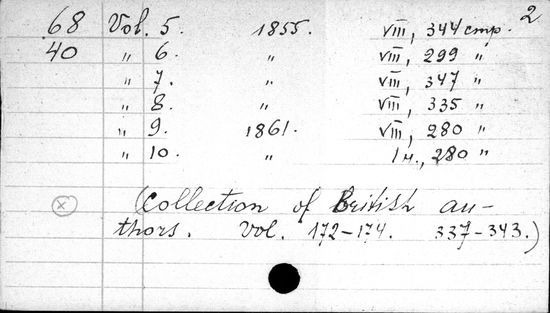 2
68 Vol. 5. 1855. VIII, 344 стр.
40 " 6. " VIII, 299 "
" 7. " VIII, 347 "
" 8. " VIII, 335 "
" 9. 1861. VIII, 280 "
" 10. " 1 н., 280 "
x (Collection of British au-
thors. Vol. 172-174. 337-343.)